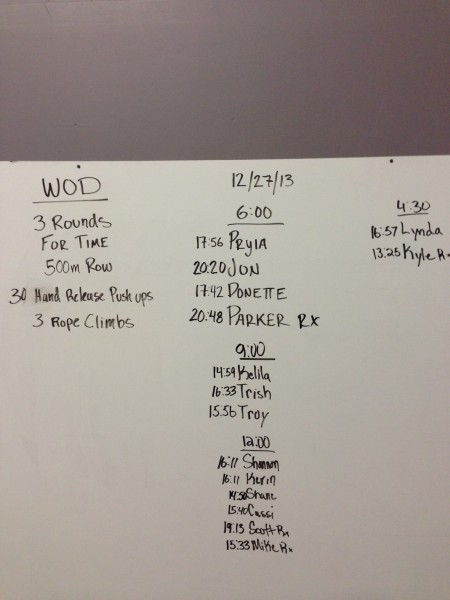 WOD
3 Rounds
FOR TIME
500m Row
30 Hand Release Push ups
3 Rope Climbs
12/27/13
6:00
17:56 PRYIA
20:20 JON
17:42 DONETTE
20:48 PARKER RX
9:00
14:59 Kelila
16:33 Trish
15:56 Troy
12:00
16:11 Shannon
16:11 Kerin
14:58 Shane
15:40 Cassi
19:13 Scott Rx
15:33 Mike Rx
4:30
16:57 Lynda
13:25 Kyle Rx